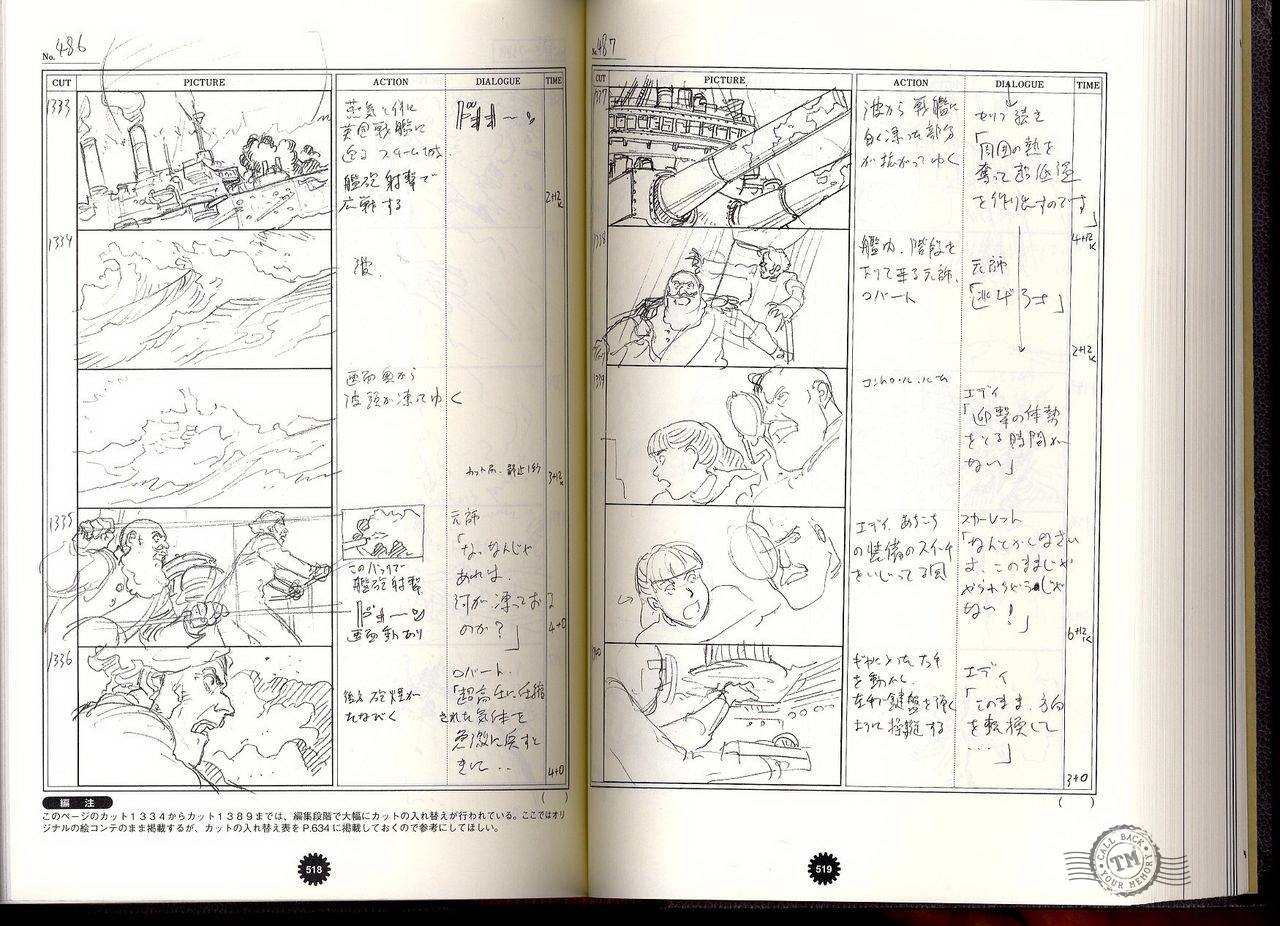 No. 486
CUT PICTURE ACTION DIALOGUE TIME
1333
蒸気と共に
英国戦艦に
迫るスチーム城.
艦砲射撃で
応戦する
2+12K
1334
波.
画面奥から
波頭が凍ってゆく
カット尻、静止1秒
3+12K
1335
このバックで
艦砲射撃
画面動あり
元帥
「なっなんじゃ
あれは.
河が凍っておる
のか?」
4+0
1336
後方砲煙が
たなびく
ロバート.
「超高圧に圧縮
された気体を
急激に戻すと
きに‥
4+0
編 注
このページのカット1334からカット1389までは、編集段階で大幅にカットの入れ替えが行われている。ここではオリ
ジナルの絵コンテのまま掲載するが、カットの入れ替え表をP.634に掲載しておくので参考にしてほしい。
518
No. 487
CUT PICTURE ACTION DIALOGUE TIME
1337
波から戦艦に
白く凍った部分
が拡がってゆく
セリフ続き
「周囲の熱を
奪って超低温
を作り出すのです」
4+12K
1338
艦内、階段を
下りて来る元帥、
ロバート
元帥
「逃げろさ」
2+12K
1339
コントロール・ルーム
エディ
「迎撃の体勢
をとる時間が
ない」
エディ、あちこち
の装備のスイッチ
をいじってる風
スカーレット
「なんとかしなさい
よ、このままじゃ
やられちゃうじゃ
ない!」
6+12K
を動かし、
左手で鍵盤を弾く
ように操縦する
エディ
「このまま、方向
を転換して
…」
3+0
519
CALL BACK
TM
YOUR MEMORY